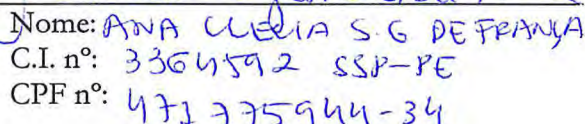 Nome: ANA CLÉLIA S.G DE FRANÇA
C.I. nº: 3364592 SSP-PE
CPF nº: 471775944-34